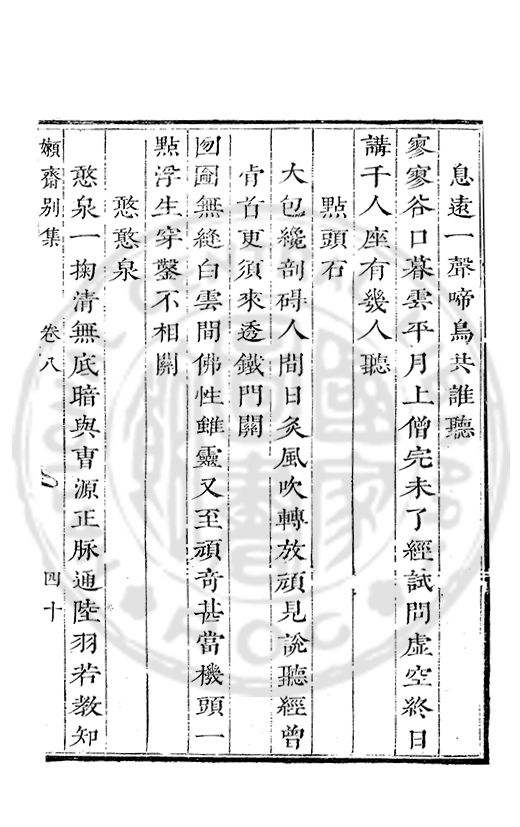 息遠一聲啼鳥共誰聽
寥寥谷口暮雲平月上僧完未了經試問虛空終日
講千人座有幾人聽
點頭石
大包纔剖碍人間日炙風吹轉放頑見說聽經曾
肯首更須來透鐵門關
囫圇無縫白雲間佛性雖靈又至頑奇甚當機頭一
點浮生穿鑿不相關
憨憨泉
憨泉一掬清無底暗與曹源正脉通陸羽若教知
嬾齋别集
卷八
四十